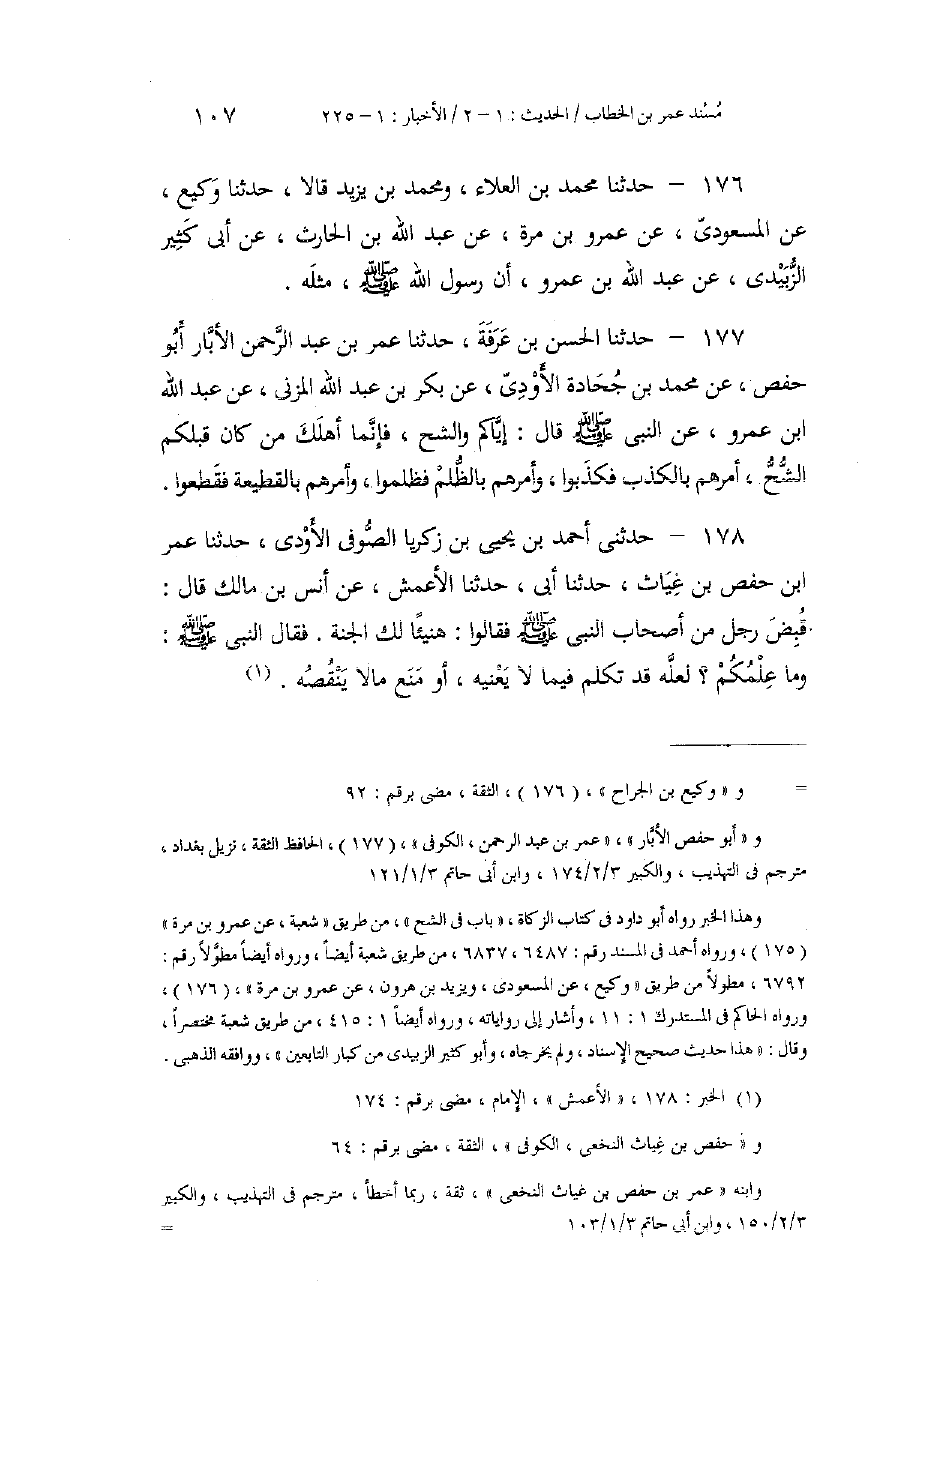 مُسْند عمر بن الخطاب / الحديث : ١ – ٢ / الأخبار : ١ – ٢٢٥ ١٠٧
١٧٦ – حدثنا محمد بن العلاء ، ومحمد بن يزيد قالا ، حدثنا وَكيع ،
عن المسعودىّ ، عن عمرو بن مرة ، عن عبد الله بن الحارث ، عن أبى كَثِير
الزُّبَيْدى ، عن عبد الله بن عمرو ، أن رسول الله ﷺ ، مثلَه .
١٧٧ – حدثنا الحسن بن عَرَفَةَ ، حدثنا عمر بن عبد الرَّحمن الأبَّار أَبُو
حفص ، عن محمد بن جُحَادة الأَوْدِىّ ، عن بكر بن عبد الله المزنى ، عن عبد الله
ابن عمرو ، عن النبى ﷺ قال : إيَّاكم والشح ، فإنَّما أهلَكَ من كان قبلكم
الشُّحُّ ، أمرهم بالكذب فكذَبوا ، وأمرهم بالظُّلمْ فظلموا ، وأمرهم بالقطيعة فقَطعوا .
١٧٨ – حدثنى أحمد بن يحيى بن زكريا الصُّوفى الأَوْدى ، حدثنا عمر
ابن حفص بن غِيَاث ، حدثنا أبى ، حدثنا الأعمش ، عن أنس بن مالك قال :
قُبِضَ رجل من أصحاب النبى ﷺ فقالوا : هنيئًا لك الجنة . فقال النبى ﷺ :
وما عِلْمُكُمْ ؟ لعلَّه قد تكلم فيما لا يَعْنيه ، أو مَنَع مالا يَنْقُصُه . (١)
= و « وكيع بن الجراح » ، ( ١٧٦ ) ، الثقة ، مضى برقم : ٩٢
و « أبو حفص الأبَّار » ، « عمر بن عبد الرحمن ، الكوفى » ، ( ١٧٧ ) ، الحافظ الثقة ، نزيل بغداد ،
مترجم فى التهذيب ، والكبير ١٧٤/٢/٣ ، وابن أبى حاتم ١٢١/١/٣
وهذا الخبر رواه أبو داود فى كتاب الزكاة ، « باب فى الشح » ، من طريق « شعبة ، عن عمرو بن مرة »
( ١٧٥ ) ، ورواه أحمد فى المسند رقم : ٦٤٨٧ ، ٦٨٣٧ ، من طريق شعبة أيضاً ، ورواه أيضاً مطوَّلاً رقم :
٦٧٩٢ ، مطولاً من طريق « وكيع ، عن المسعودى ، ويزيد بن هرون ، عن عمرو بن مرة » ، ( ١٧٦ ) ،
ورواه الحاكم فى المستدرك ١ : ١١ ، وأشار إلى رواياته ، ورواه أيضاً ١ : ٤١٥ ، من طريق شعبة مختصراً ،
وقال : « هذا حديث صحيح الإسناد ، ولم يخرجاه ، وأبو كثير الزبيدى من كبار التابعين » ، ووافقه الذهبى .
(١) الخبر : ١٧٨ ، « الأعمش » ، الإمام ، مضى برقم : ١٧٤
و « حفص بن غِياث النخعى ، الكوفى » ، الثقة ، مضى برقم : ٦٤
وابنه « عمر بن حفص بن غياث النخعى » ، ثقة ، ربما أخطأ ، مترجم فى التهذيب ، والكبير
١٥٠/٢/٣ ، وابن أبى حاتم ١٠٣/١/٣ =